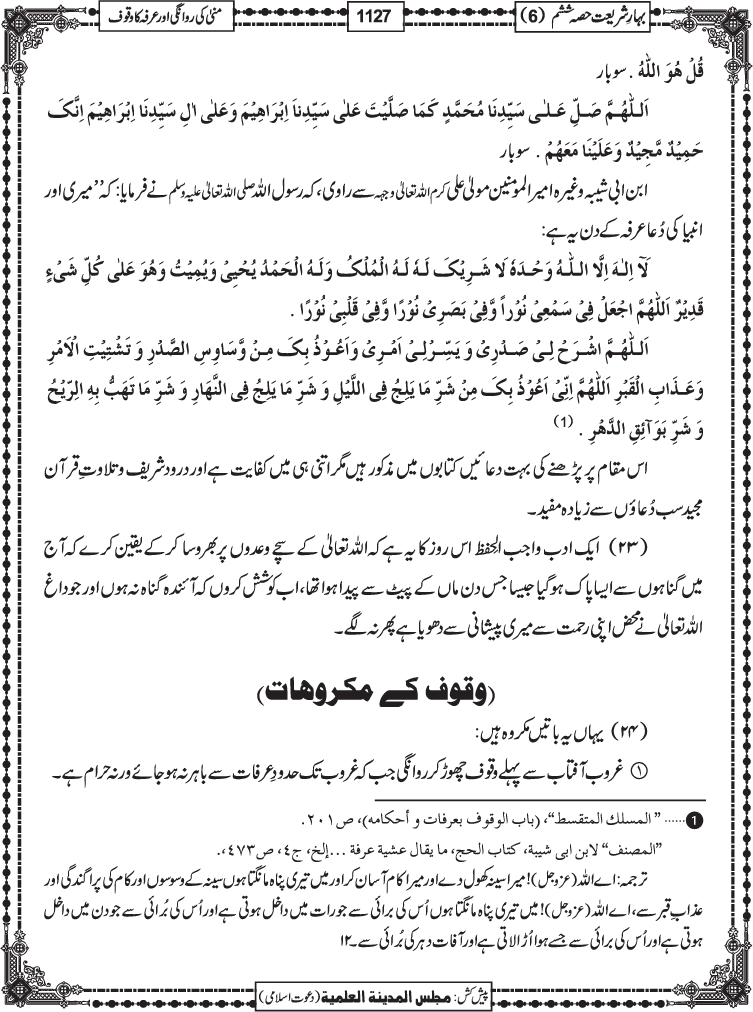 بہارِ شریعت حصہ ششم (6)
1127
منیٰ کی روانگی اور عرفہ کا وقوف
قُلْ هُوَ اللّٰهُ . سوبار
اَللّٰهُمَّ صَلِّ عَلٰى سَيِّدِنَا مُحَمَّدٍ كَمَا صَلَّيْتَ عَلٰى سَيِّدِنَا اِبْرَاهِيْمَ وَعَلٰى اٰلِ سَيِّدِنَا اِبْرَاهِيْمَ اِنَّكَ
حَمِيْدٌ مَّجِيْدٌ وَعَلَيْنَا مَعَهُمْ . سوبار
ابن ابی شیبہ وغیرہ امیر المومنین مولیٰ علی کرم اللہ تعالیٰ وجہہ سے راوی، کہ رسول اللہ صلی اللہ تعالیٰ علیہ وسلم نے فرمایا: کہ ”میری اور
انبیا کی دُعا عرفہ کے دن یہ ہے:
لَآ اِلٰهَ اِلَّا اللّٰهُ وَحْدَهٗ لَا شَرِيْكَ لَهٗ لَهُ الْمُلْكُ وَلَهُ الْحَمْدُ يُحْيِىْ وَيُمِيْتُ وَهُوَ عَلٰى كُلِّ شَىْءٍ
قَدِيْرٌ اَللّٰهُمَّ اجْعَلْ فِىْ سَمْعِىْ نُوْراً وَّفِىْ بَصَرِىْ نُوْرًا وَّفِىْ قَلْبِىْ نُوْرًا .
اَللّٰهُمَّ اشْرَحْ لِىْ صَدْرِىْ وَ يَسِّرْلِىْ اَمْرِىْ وَاَعُوْذُ بِكَ مِنْ وَّسَاوِسِ الصَّدْرِ وَ تَشْتِيْتِ الْاَمْرِ
وَعَذَابِ الْقَبْرِ اَللّٰهُمَّ اِنِّىْ اَعُوْذُ بِكَ مِنْ شَرِّ مَا يَلِجُ فِى اللَّيْلِ وَ شَرِّ مَا يَلِجُ فِى النَّهَارِ وَ شَرِّ مَا تَهَبُّ بِهِ الرِّيْحُ
وَ شَرِّ بَوَآئِقِ الدَّهْرِ . (1)
اس مقام پر پڑھنے کی بہت دعائیں کتابوں میں مذکور ہیں مگر اتنی ہی میں کفایت ہے اور درود شریف و تلاوتِ قرآن
مجید سب دُعاؤں سے زیادہ مفید۔
(۲۳) ایک ادب واجب الحفظ اس روز کا یہ ہے کہ اللہ تعالیٰ کے سچے وعدوں پر بھروسا کر کے یقین کرے کہ آج
میں گناہوں سے ایسا پاک ہوگیا جیسا جس دن ماں کے پیٹ سے پیدا ہوا تھا، اب کوشش کروں کہ آئندہ گناہ نہ ہوں اور جو داغ
اللہ تعالیٰ نے محض اپنی رحمت سے میری پیشانی سے دھویا ہے پھر نہ لگے۔
(وقوف کے مکروہات)
(۲۴) یہاں یہ باتیں مکروہ ہیں:
① غروب آفتاب سے پہلے وقوف چھوڑ کر روانگی جب کہ غروب تک حدودِ عرفات سے باہر نہ ہو جائے ورنہ حرام ہے۔
1 ...... ”المسلك المتقسط“، (باب الوقوف بعرفات و أحكامه)، ص٢٠١.
”المصنف“ لابن ابی شيبة، كتاب الحج، ما يقال عشية عرفة ...إلخ، ج٤، ص٤٧٣،.
ترجمہ: اے اللہ (عزوجل)! میرا سینہ کھول دے اور میرا کام آسان کر اور میں تیری پناہ مانگتا ہوں سینہ کے وسوسوں اور کام کی پراگندگی اور
عذاب قبر سے، اے اللہ (عزوجل)! میں تیری پناہ مانگتا ہوں اُس کی برائی سے جو رات میں داخل ہوتی ہے اور اُس کی بُرائی سے جو دن میں داخل
ہوتی ہے اور اُس کی برائی سے جسے ہوا اُڑا لاتی ہے اور آفات دہر کی بُرائی سے۔ ۱۲
پیش کش: مجلس المدينة العلمية (دعوت اسلامی)